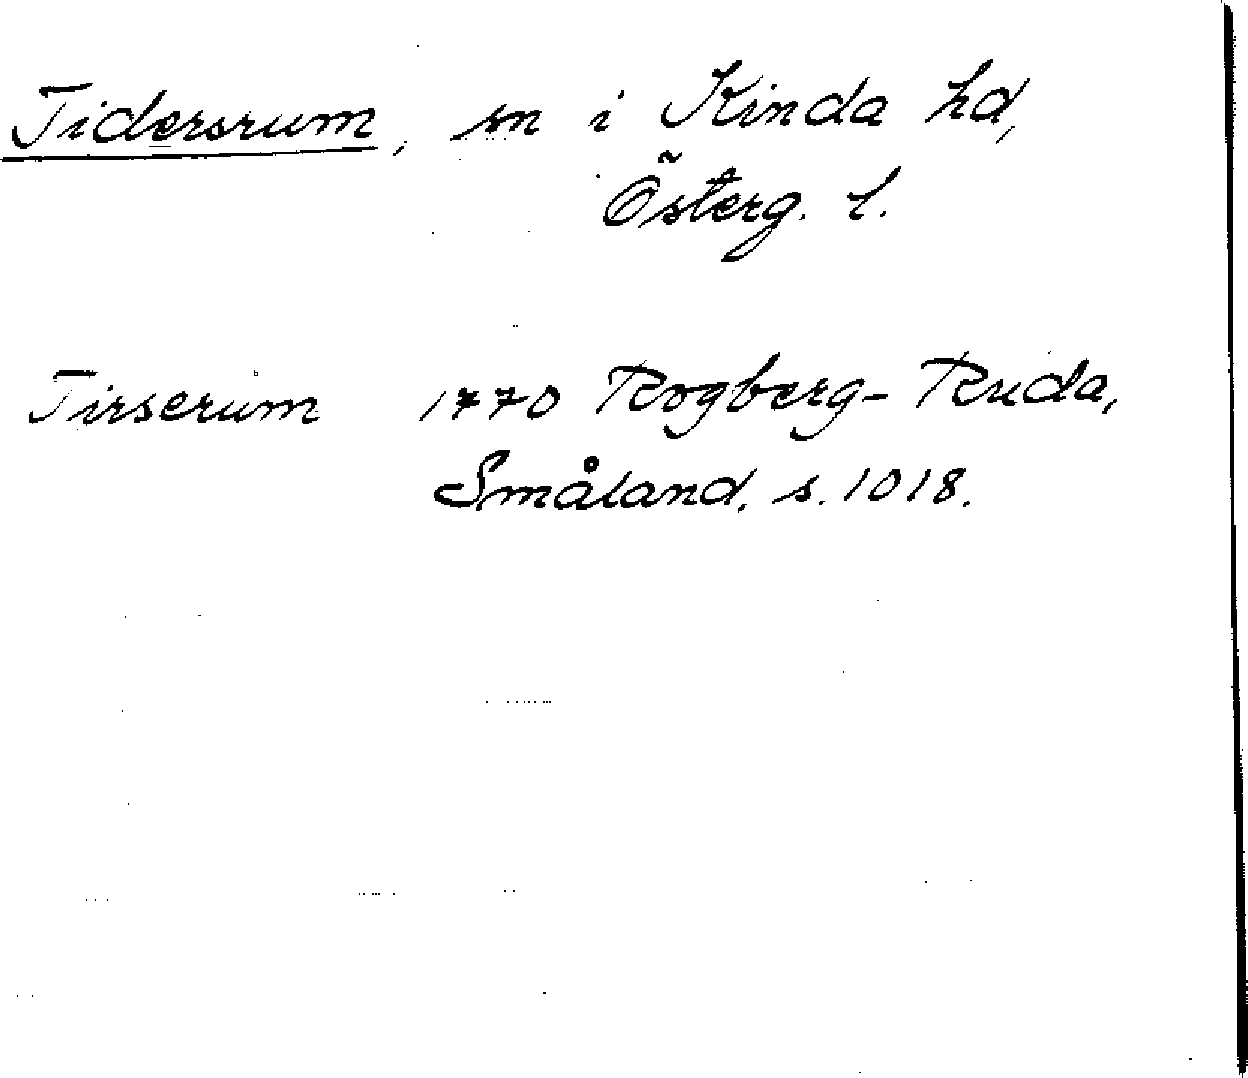 Tidersrum, sn i Kinda hd,
Österg. l.
Tirserum 1770 Rogberg-Ruda,
Småland, s. 1018.